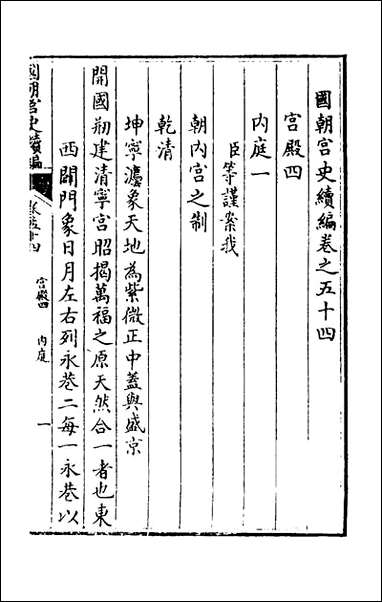 國朝宮史續編卷之五十四
宮殿四
內庭一
臣等謹案我
朝內宮之制
乾清
坤寧灋象天地為紫微正中蓋與盛京
開國剏建清寧宮昭揭萬福之原天然合一者也東
西闢門象日月左右列永巷二每一永巷以
國朝宮史續編
宮殿四 內庭 一